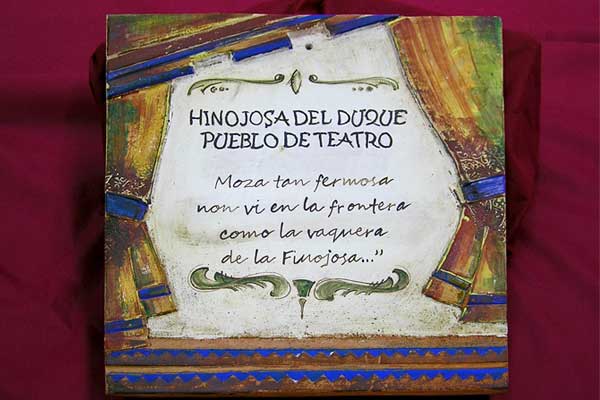 HINOJOSA DEL DUQUE
PUEBLO DE TEATRO
Moza tan fermosa
non vi en la frontera
como la vaquera
de la Finojosa..."